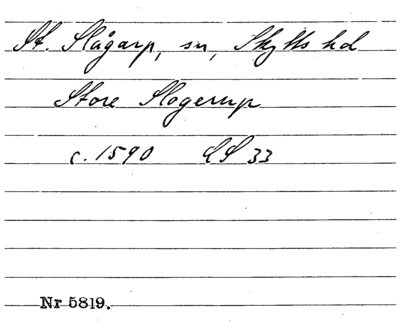 St. Slågarp, sn, Skytts hd
Store Slogerup
c. 1590 LS 33
Nr 5819.